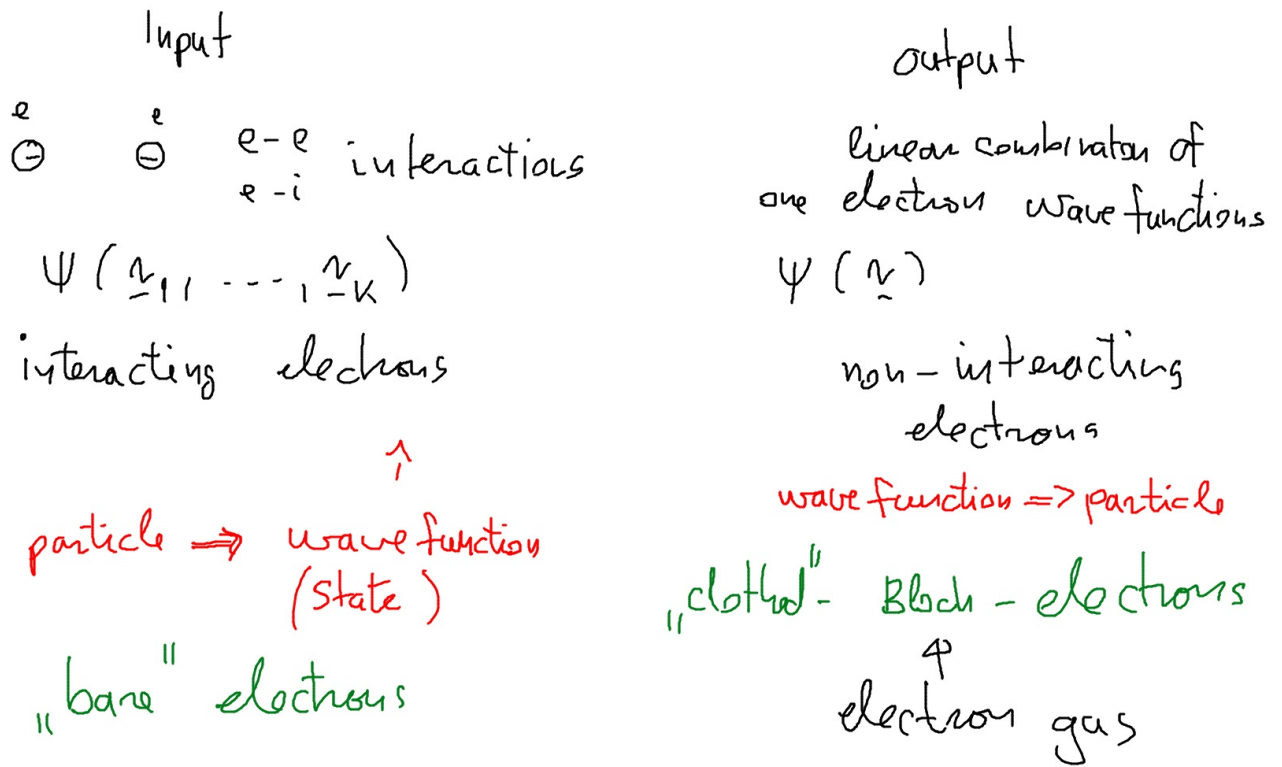 Input
e e
⊖ ⊖ e-e interactions
e-i
Ψ(r₁, ..., r_K)
interacting electrons
↑
particle ⇒ wave function
(State)
„bare" electrons
output
linear combination of
one electron wave functions
Ψ(r)
non-interacting
electrons
wave function => particle
„clothed"- Bloch-electrons
⇑
electron gas